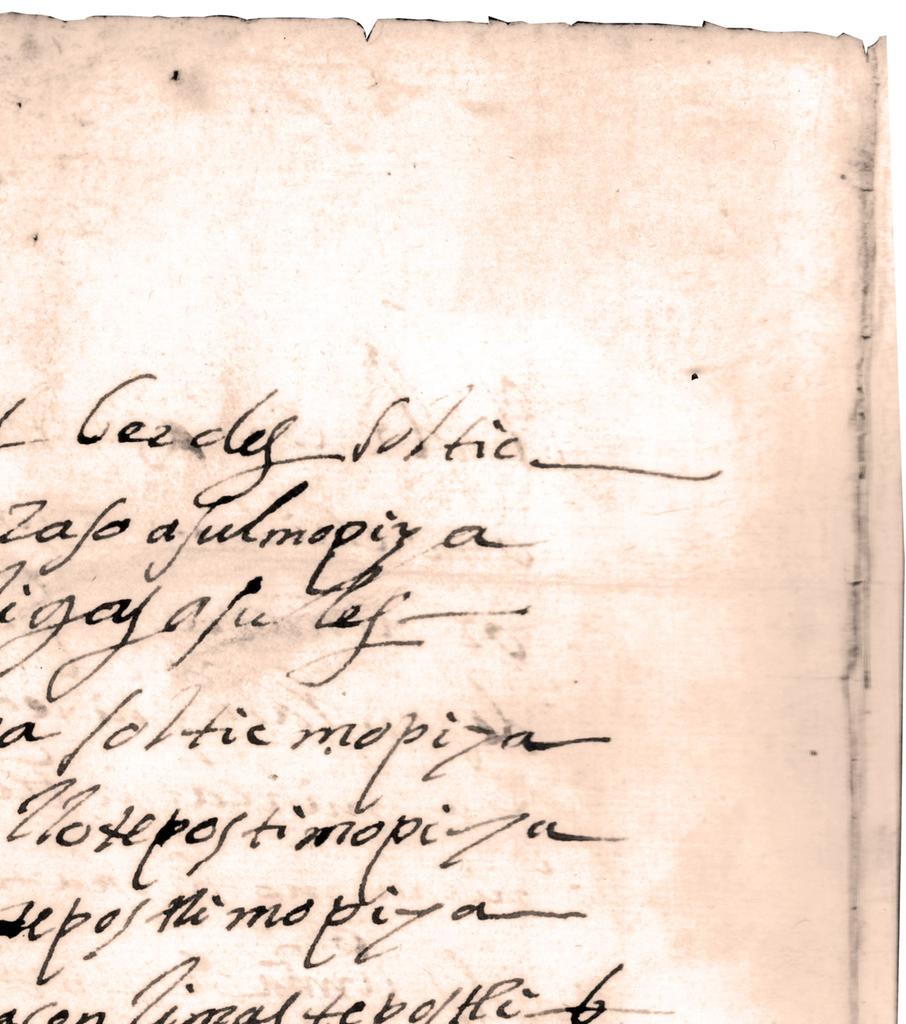 berdes soltic
raso asul mopiya
ligas asules
soltic mopiya
llo teposti mopiya
tepostli mopiya
con limas tepostli